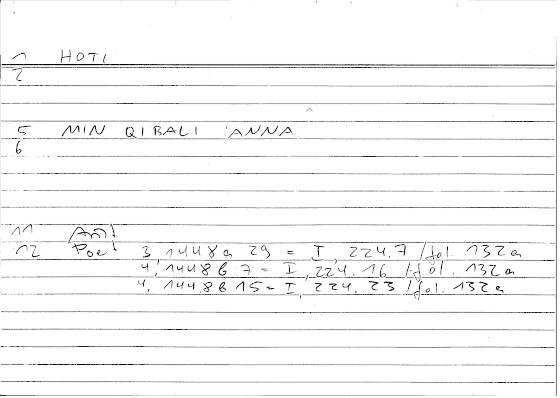 1 HOTI
2
5 MIN QIBALI 'ANNA
6
11 Ari!
12 Poe! 3, 1448a 29 = I, 224.7 / fol. 132a
4, 1448b 7 = I, 224.16 / fol. 132a
4, 1448b 15 = I, 224.23 / fol. 132a